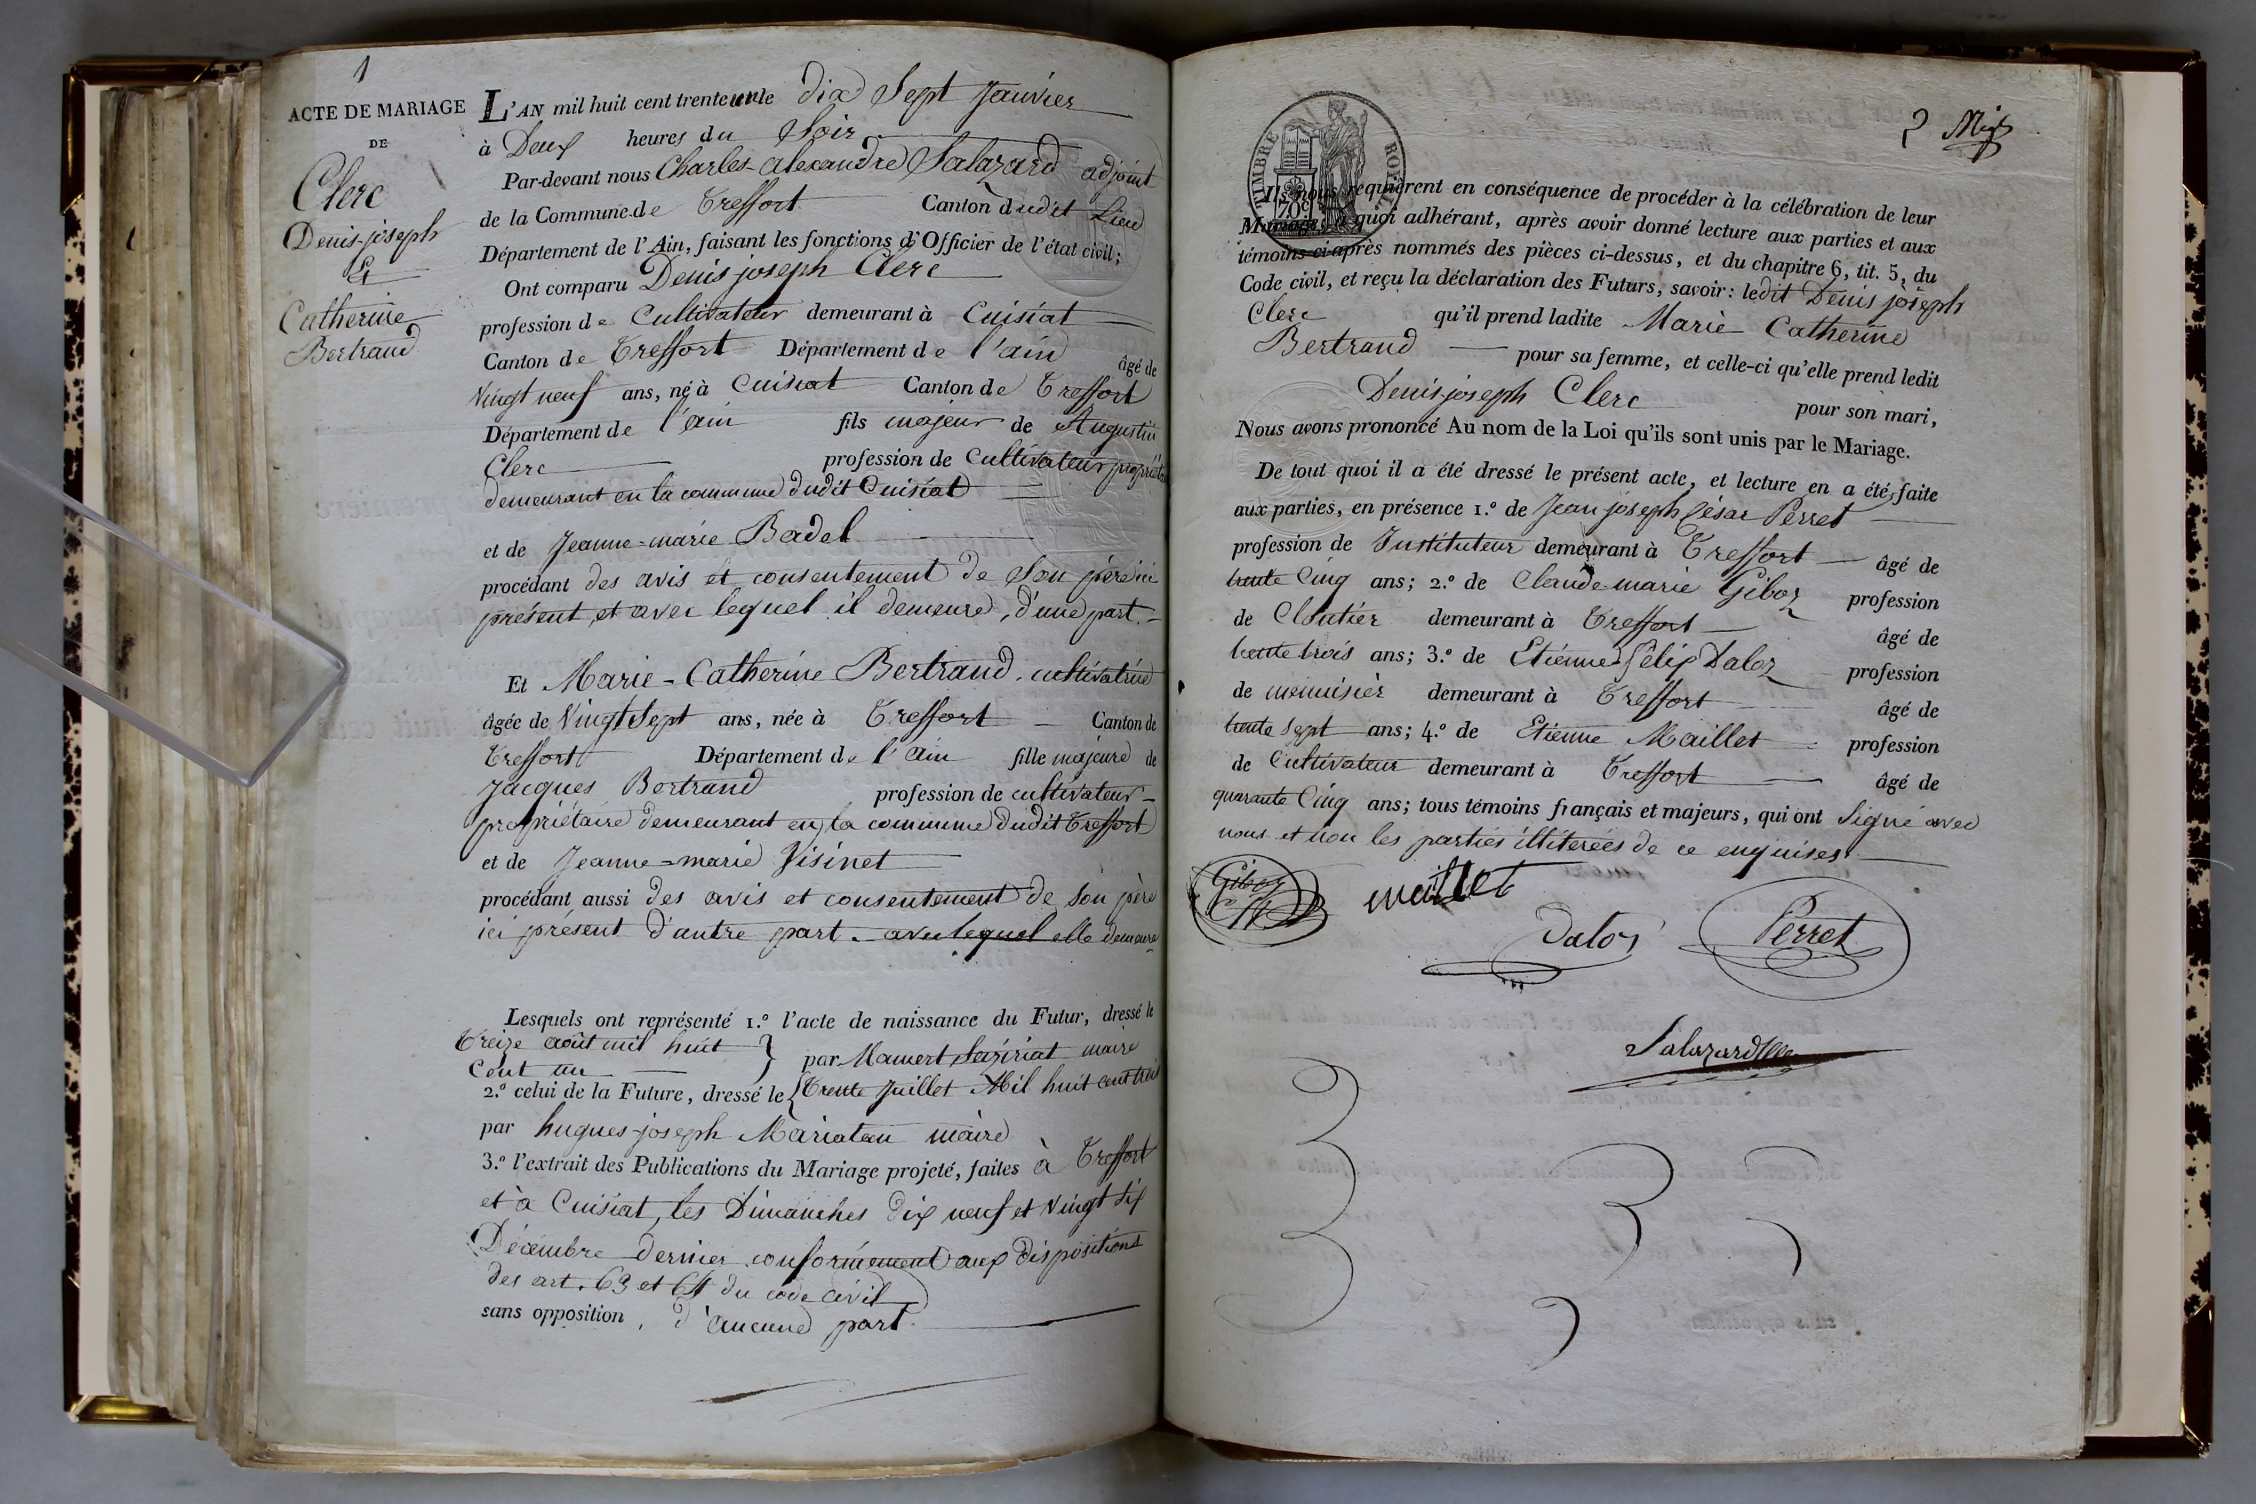 1
ACTE DE MARIAGE
DE
Clerc
Denis-joseph
&
Catherine
Bertrand
L'AN mil huit cent trente un le dix Sept Janvier
à Deux heures du Soir
Par-devant nous Charles-alexandre Salazard adjoint
de la Commune de Treffort Canton dudit Lieu
Département de l'Ain, faisant les fonctions d'Officier de l'état civil;
Ont comparu Denis joseph Clerc
profession de Cultivateur demeurant à Cuisiat
Canton de Treffort Département de l'ain âgé de
Vingt neuf ans, né à Cuisiat Canton de Treffort
Département de l'ain fils majeur de Augustin
Clerc profession de Cultivateur propriétaire
demeurant en la commune dudit Cuisiat
et de Jeanne-marie Badel
procédant des avis et consentement de Son père ici
présent, et avec lequel il demeure, d'une part.
Et Marie-Catherine Bertrand, cultivatrice
âgée de Vingt Sept ans, née à Treffort Canton de
Treffort Département de l'ain fille majeure de
Jacques Bertrand profession de cultivateur
propriétaire demeurant en la commune dudit Treffort
et de Jeanne-marie Visinet
procédant aussi des avis et consentement de Son père
ici présent d'autre part. avec lequel elle demeure
Lesquels ont représenté 1.° l'acte de naissance du Futur, dressé le
Treize août mil huit } par Mamert maire
Cent un
2.° celui de la Future, dressé le { Trente Juillet Mil huit cent trois
par hugues-joseph Mariatan maire
3.° l'extrait des Publications du Mariage projeté, faites à Treffort
et à Cuisiat, les Dimanches dix neuf et Vingt Six
Décembre dernier conformément aux dispositions
des art. 63 et 64 du code civil
sans opposition, d'aucune part.
TIMBRE ROYAL
70c
Ils nous requièrent en conséquence de procéder à la célébration de leur
Mariage; à quoi adhérant, après avoir donné lecture aux parties et aux
témoins ci-après nommés des pièces ci-dessus, et du chapitre 6, tit. 5, du
Code civil, et reçu la déclaration des Futurs, savoir: ledit Denis joseph
Clerc qu'il prend ladite Marie Catherine
Bertrand pour sa femme, et celle-ci qu'elle prend ledit
Denis joseph Clerc pour son mari,
Nous avons prononcé Au nom de la Loi qu'ils sont unis par le Mariage.
De tout quoi il a été dressé le présent acte, et lecture en a été faite
aux parties, en présence 1.° de Jean joseph César Perret
profession de Instituteur demeurant à Treffort âgé de
trente Cinq ans; 2.° de Claude-marie Giboz profession
de Cloutier demeurant à Treffort âgé de
trente trois ans; 3.° de Etienne Félix Daloz profession
de menuisier demeurant à Treffort âgé de
trente Sept ans; 4.° de Etienne Maillet profession
de Cultivateur demeurant à Treffort âgé de
quarante Cinq ans; tous témoins français et majeurs, qui ont Signé avec
nous et non les parties illiterées de ce enquises.
Giboz
maillet
Daloz
Perret
Salazard